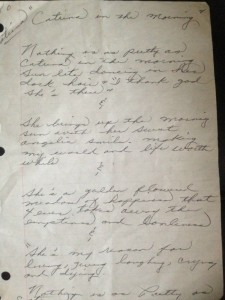 Catrina in the Morning
Nothing is as Pretty as
Catrina in the morning
Sun lite dancing in her
dark hair "I thank god
She's there"
&
She brings up the morning
sun with her sweet
angelic smile. making
my world and life worth
while
&
She's a golden flowered
meadow of happiness that
4 ever takes away the
emptiness and
&
"She's my reason for
living, giving, laughing, crying
and dying"
Nothing is as Pretty as